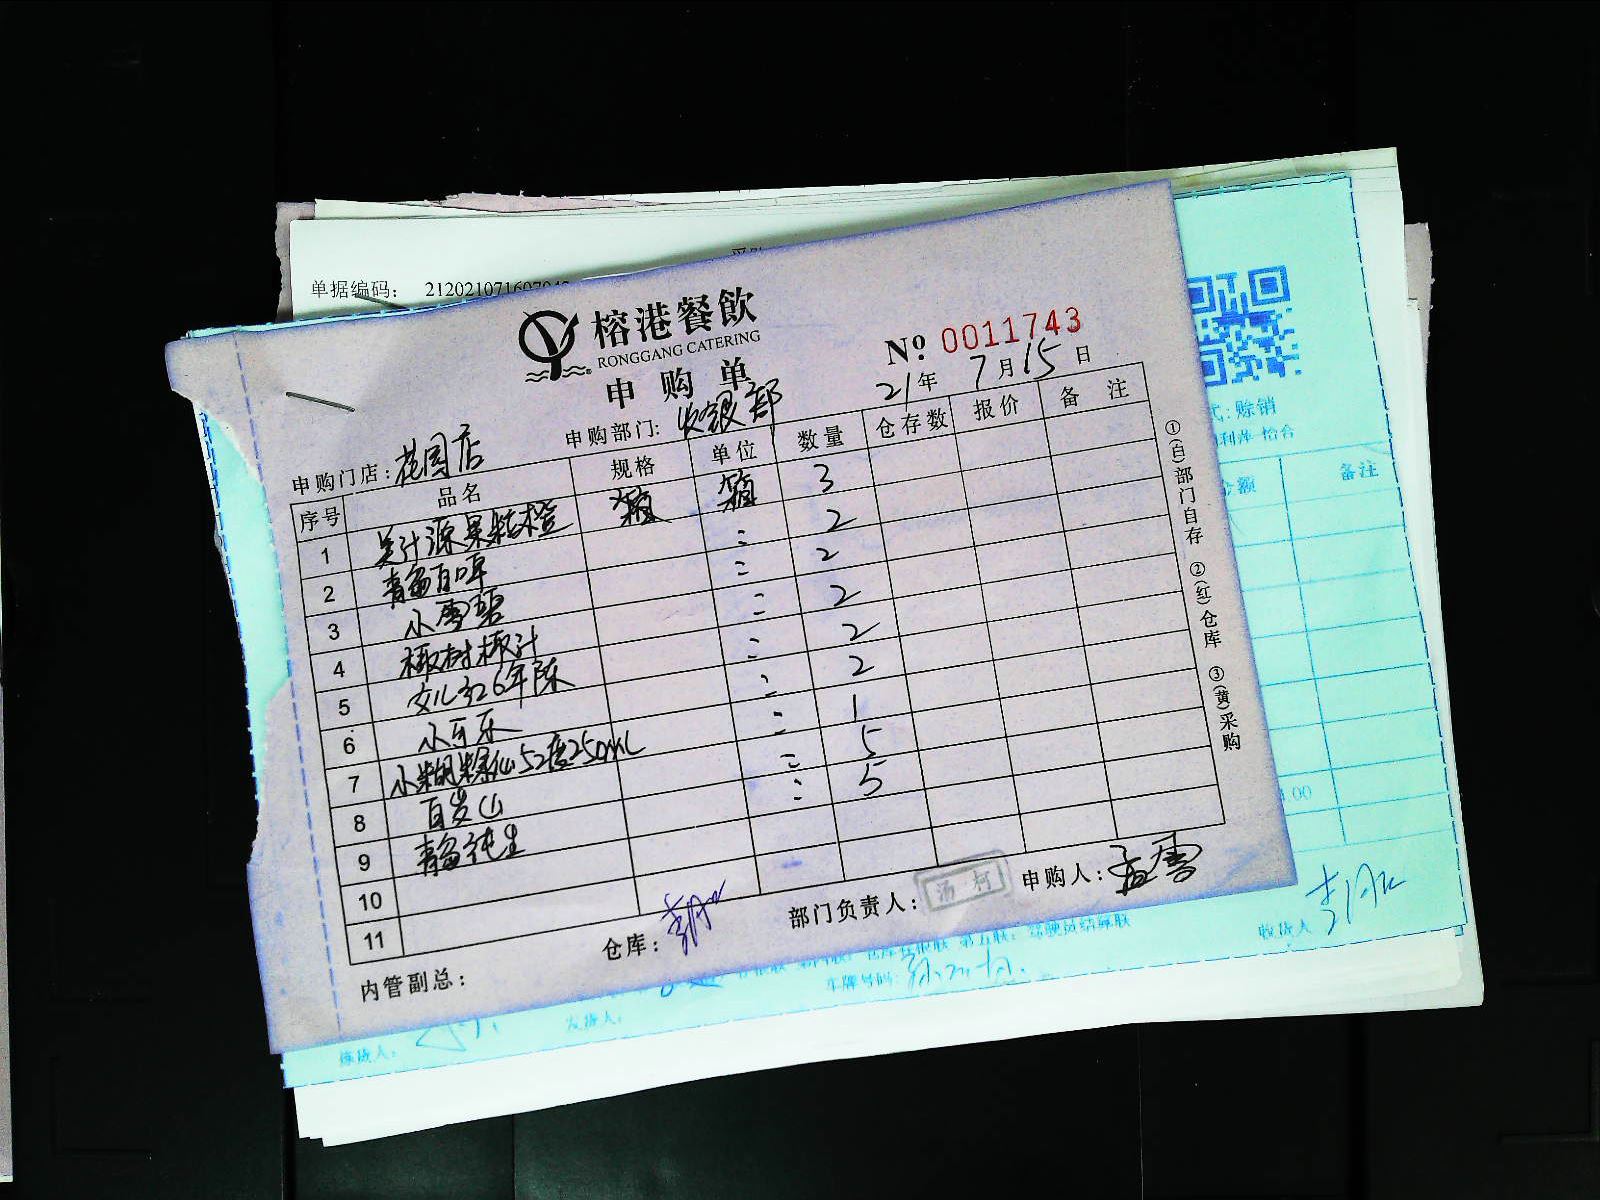 单据编码：
榕港餐飲
RONGGANG CATERING
申购单
№ 0011743
21年7月15日
申购门店：花园店
申购部门：收银部
序号 品名 规格 单位 数量 仓存数 报价 备注
1 美汁源果粒橙 箱 箱 3
2 青岛百啤 : 2
3 小雪碧 : 2
4 椰树椰汁 : 2
5 女儿红6年陈 : 2
6 小可乐 : 2
7 小糊涂仙52度250mL : 1
8 百岁山 : 5
9 青岛纯生 : 5
10
11
①(白)部门自存 ②(红)仓库 ③(黄)采购
内管副总：
仓库：
部门负责人：汤柯
申购人：孟雪
式：赊销
金额
备注
.00
收货人
车牌号码：
发货人：